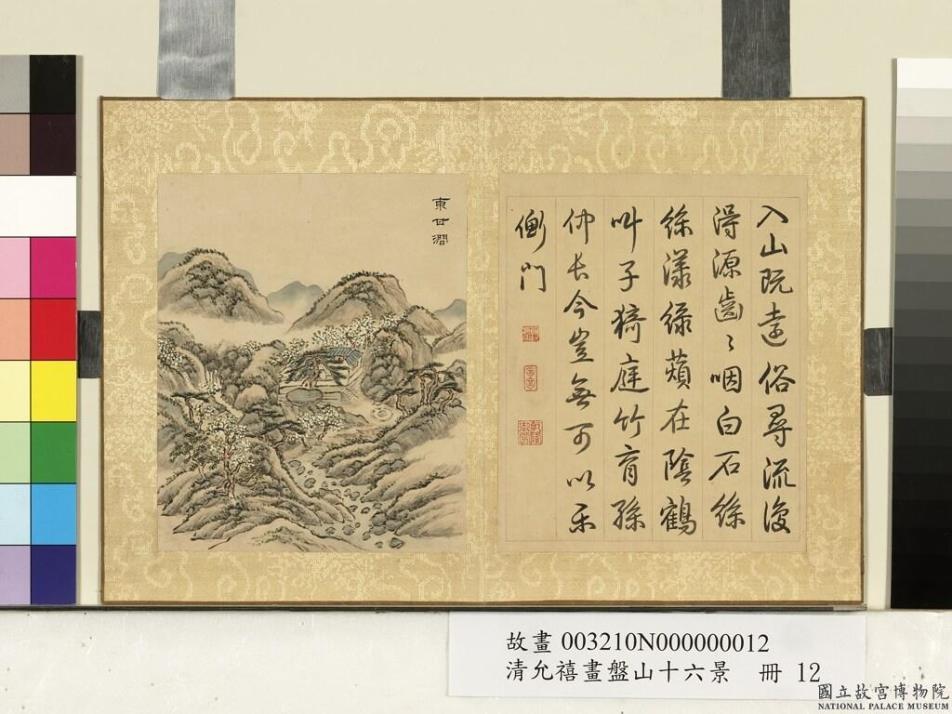 東甘澗
入山既遠俗尋流復
得源齒〻咽白石絲
絲漾綠蘋在陰鶴
叫子猗庭竹育孫
仲長今豈無可以樂
衡門
故畫 003210N000000012
清允禧畫盤山十六景 冊 12
國立故宮博物院
NATIONAL PALACE MUSEUM